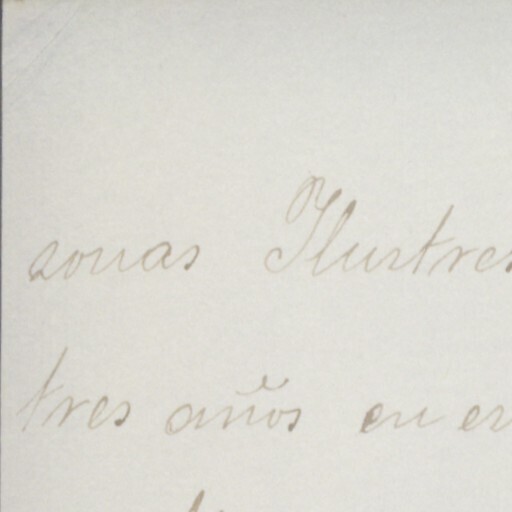 sonas Ilustres
tres años en